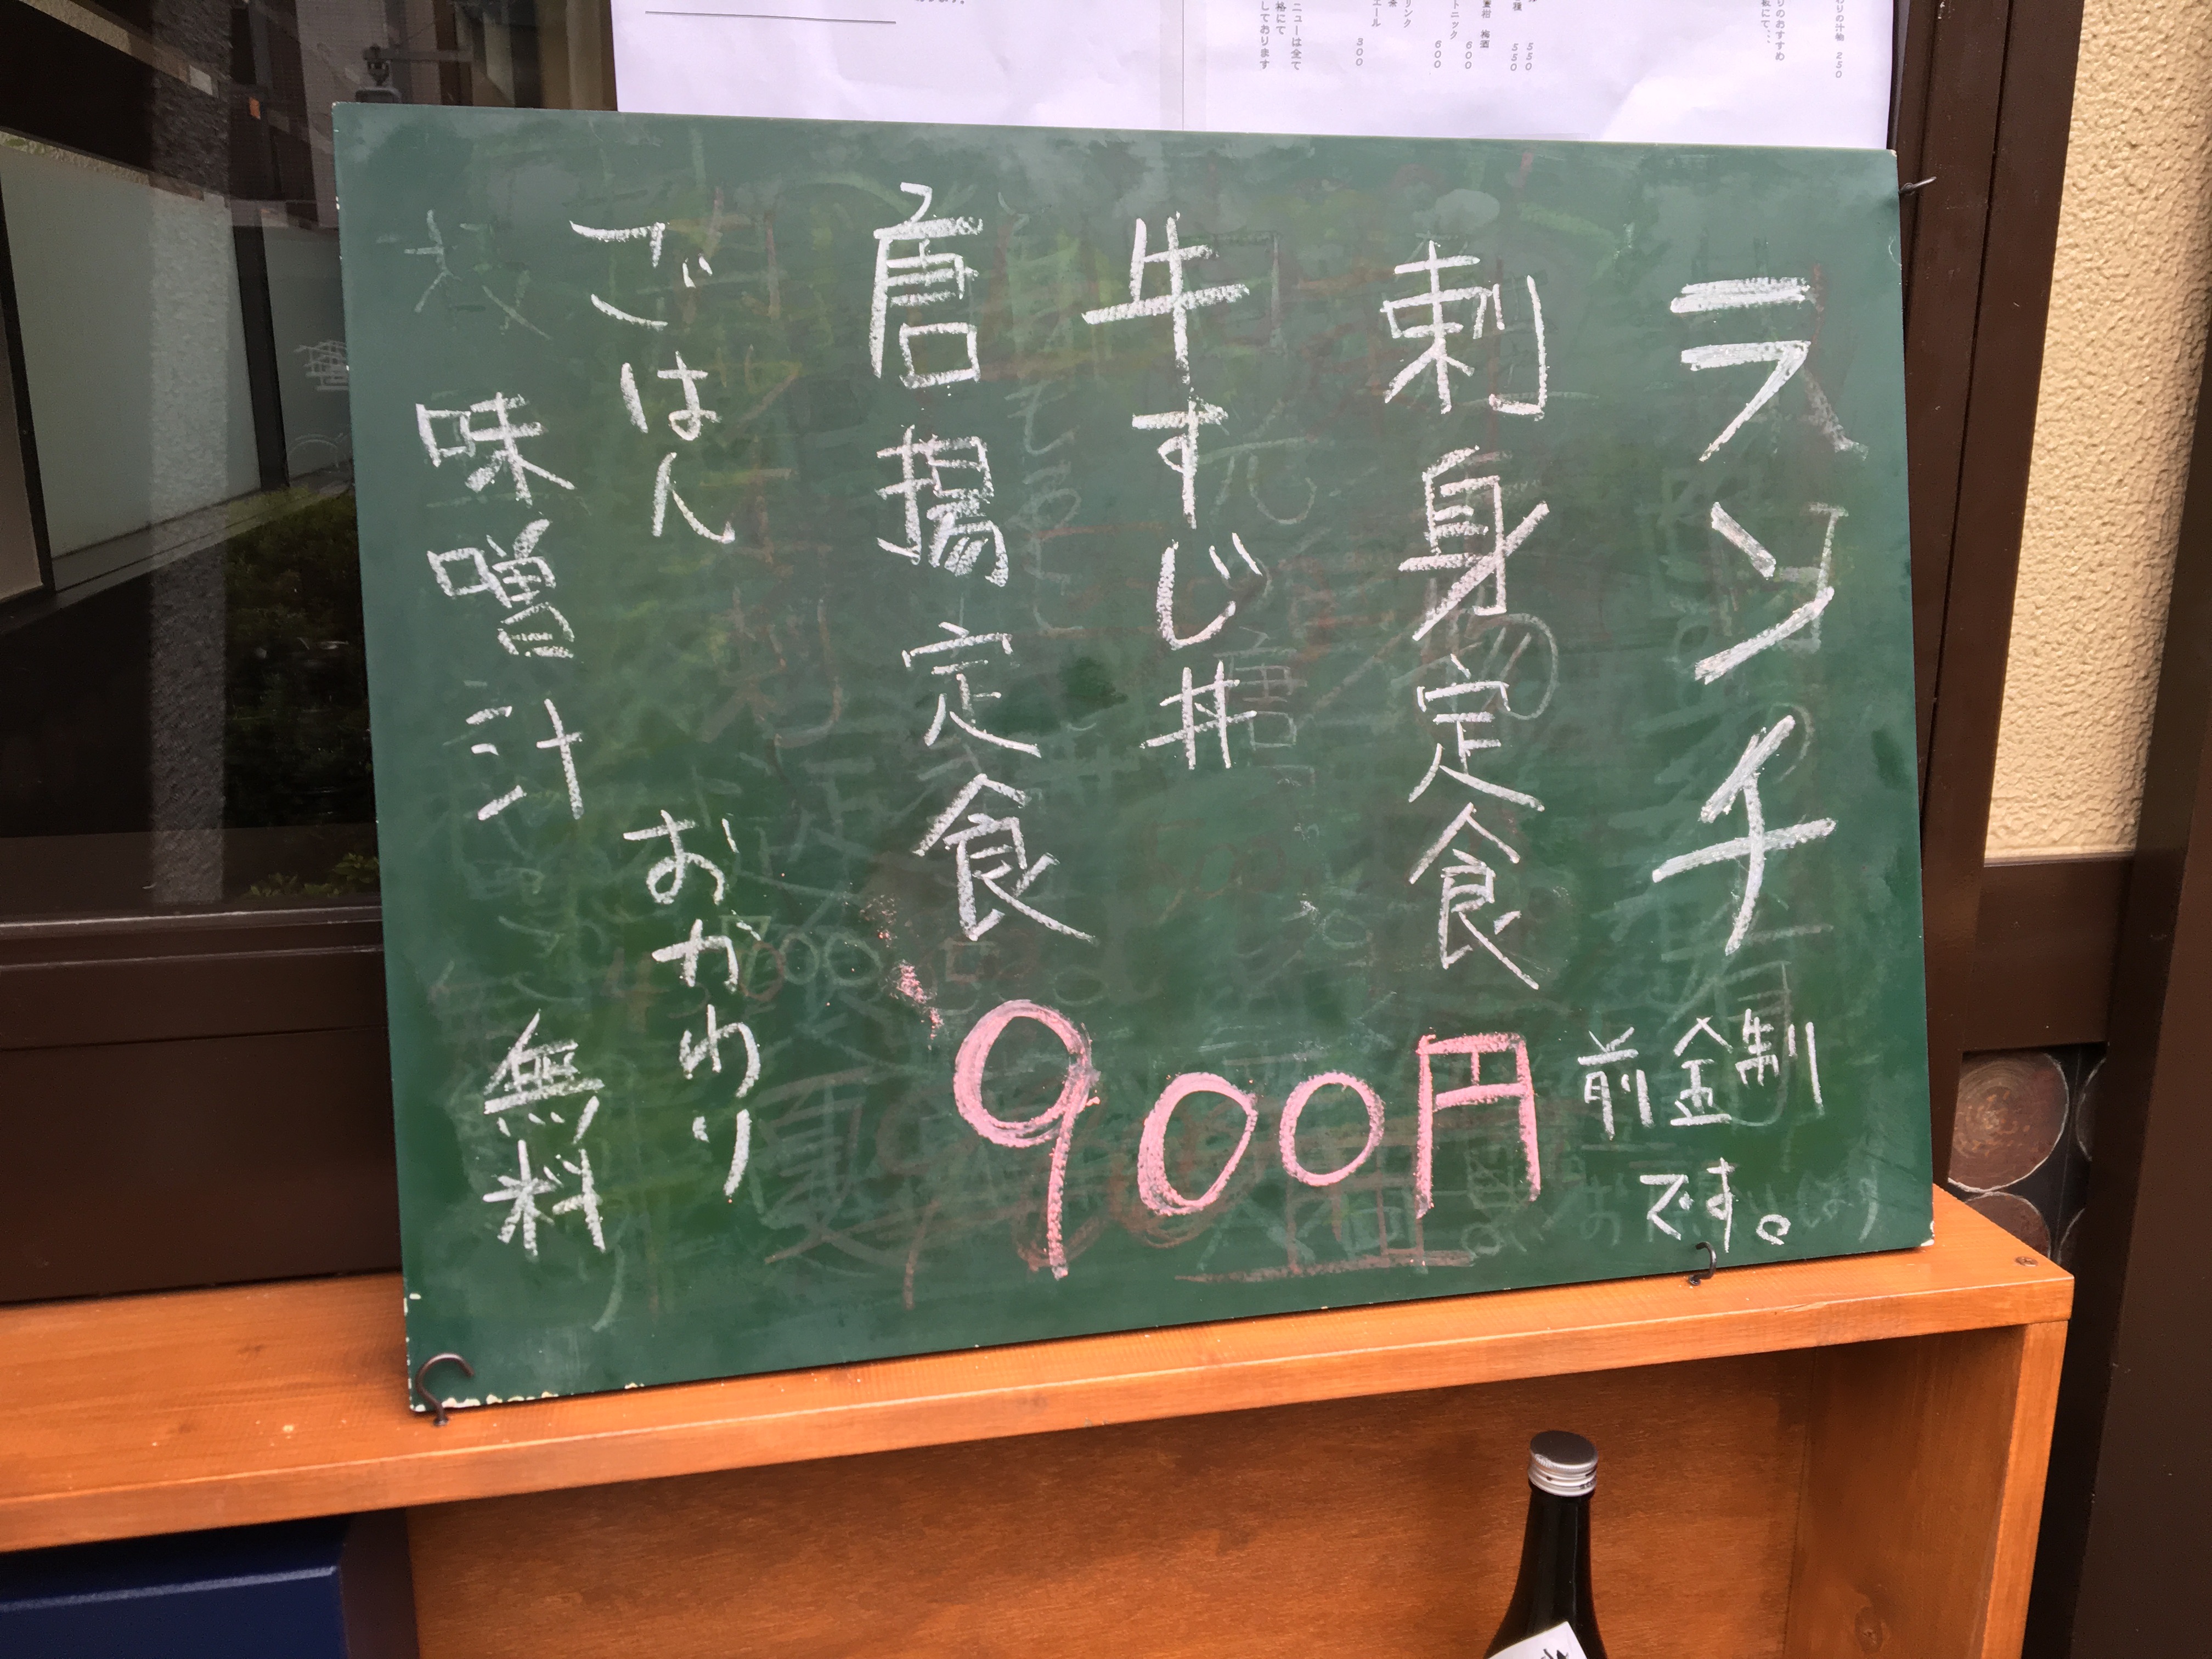 ランチ
前金制
です。
刺身定食
牛すじ丼
唐揚定食
900円
ごはん おかわり
味噌汁 無料